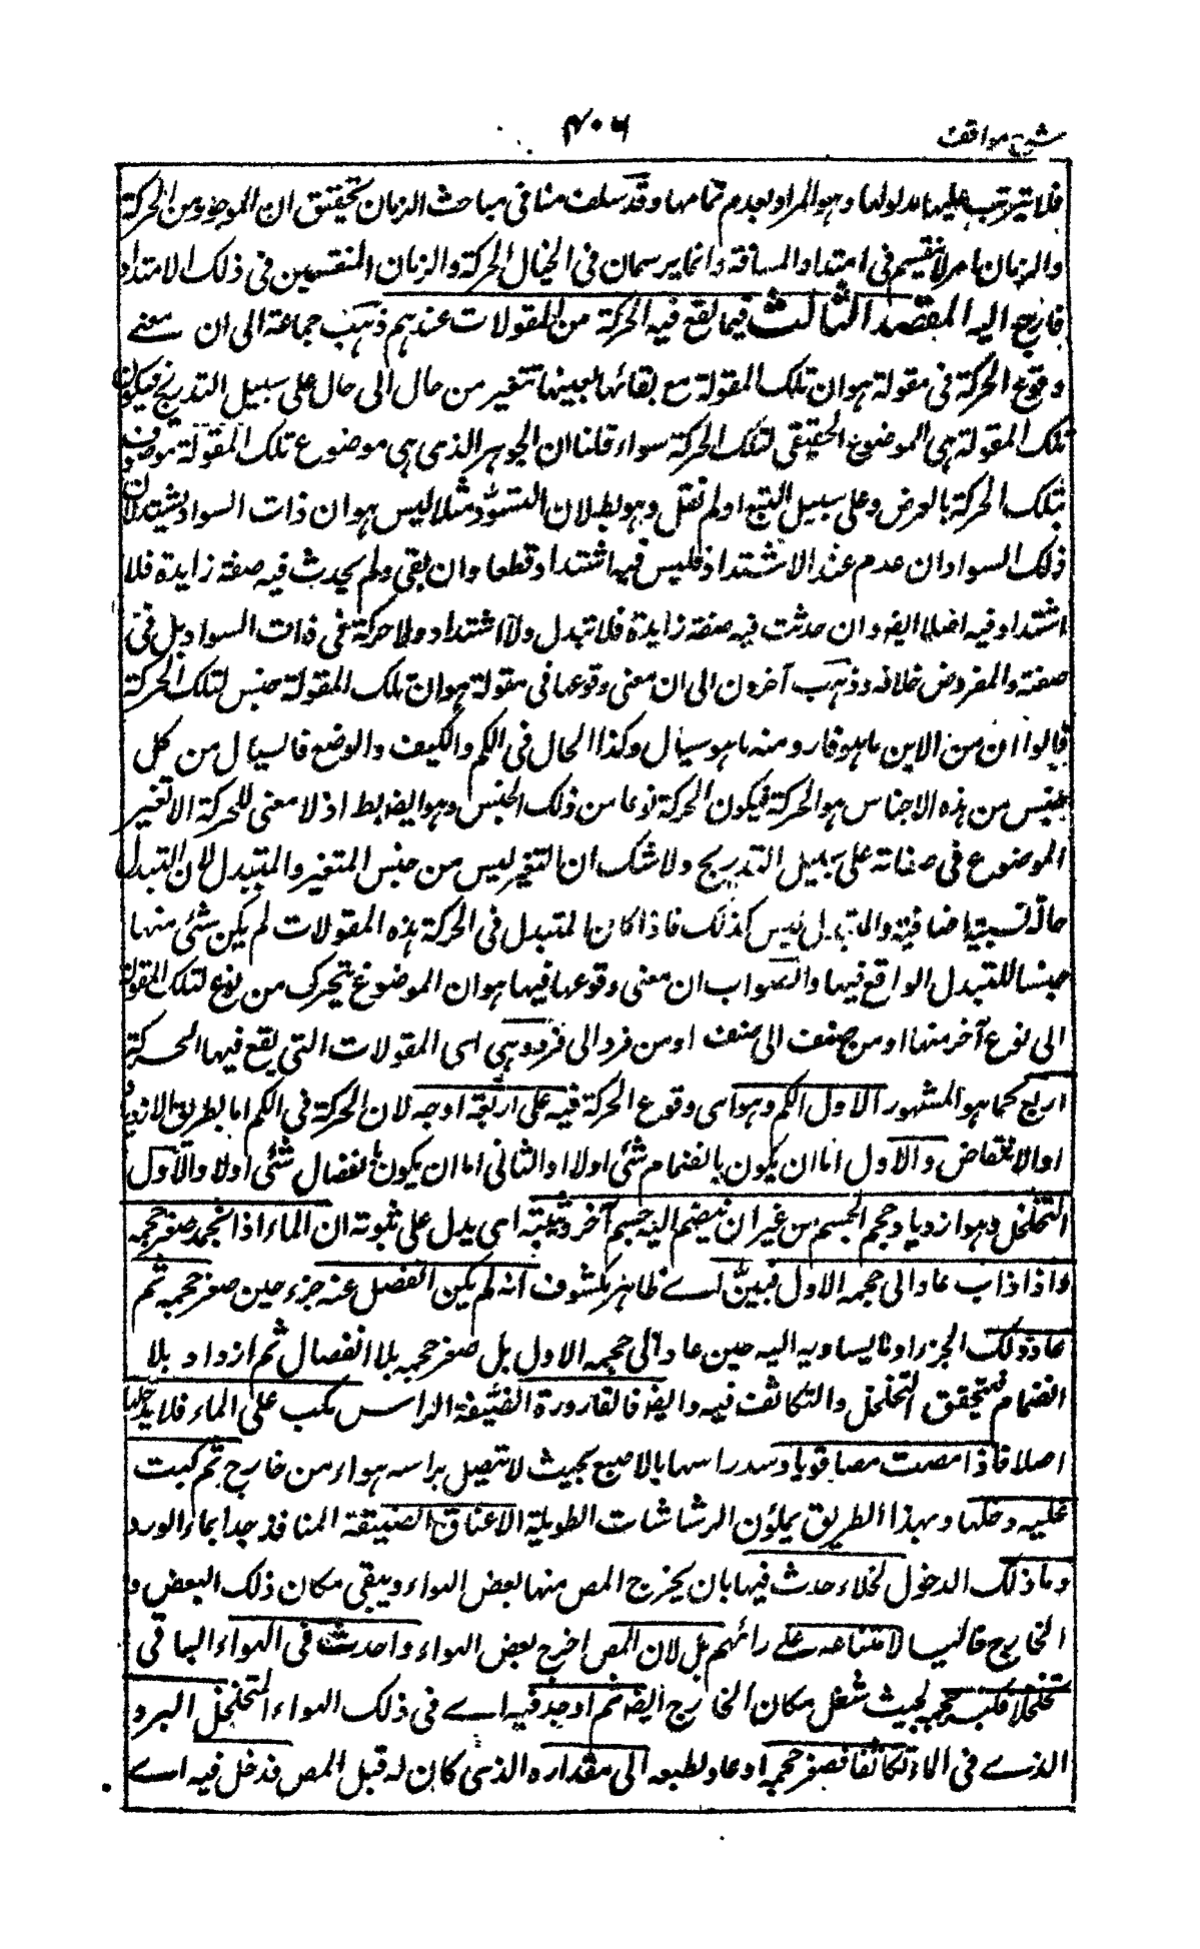 شرح مواقف
۴۰۶
فلا يترتب عليها مدلولها وهو المراد بعدم تمامها وقد سلف منا فى مباحث الزمان تحقيق ان الموجود من الحركة
والزمان امر لا ينقسم فى امتداد المسافة وانما يرسمان فى الخيال الحركة والزمان المنقسمين فى ذلك الامتداد
فارجع اليه المقصد الثالث فيما يقع فيه الحركة من المقولات عندهم ذهب جماعة الى ان معنے
وقوع الحركة فى مقولة هو ان تلك المقولة مع بقائها بعينها تتغير من حال الى حال على سبيل التدريج فيكون
تلك المقولة هى الموضوع الحقيقى لتلك الحركة سواء قلنا ان الجوهر الذى هى موضوع تلك المقولة موصوف
بتلك الحركة بالعرض وعلى سبيل التبع او لم نقل وهو بط لان التسود مثلا ليس هو ان ذات السواد يشتد لان
ذلك السواد ان عدم عند الاشتداد فليس فيه اشتداد قطعا وان بقى ولم يحدث فيه صفة زايدة فلا
اشتداد فيه اصلا ايضا وان حدثت فيه صفة زايدة فلا تبدل ولا اشتداد ولا حركة فى ذات السواد بل فى
صفته والمفروض خلافه وذهب آخرون الى ان معنى وقوعها فى مقولة هو ان تلك المقولة جنس لتلك الحركة
قالوا ان من الاين ما هو قار ومنه ما هو سيال وكذا الحال فى الكم والكيف والوضع فالسيال من كل
جنس من هذه الاجناس هو الحركة فيكون الحركة نوعا من ذلك الجنس وهو ايضا بط اذ لا معنى للحركة الا تغير
الموضوع فى صفاته على سبيل التدريج ولا شك ان التغير ليس من جنس المتغير والمتبدل لان التبدل
حالة نسبية اضافية والمتبدل ليس كذلك فاذا كان المتبدل فى الحركة هذه المقولات لم يكن شئ منها
جنسا للتبدل الواقع فيها والصواب ان معنى وقوعها فيها هو ان الموضوع يتحرك من نوع لتلك المقولة
الى نوع آخر منها او من صنف الى صنف او من فرد الى فرد وهى اى المقولات التى يقع فيها الحركة
اربع كما هو المشهور الاول الكم وهو اى وقوع الحركة فيه على اربعة اوجه لان الحركة فى الكم اما بطريق الازدياد
او الانتقاص والاول اما ان يكون بانضمام شئ اولا والثانى اما ان يكون بانفصال شئ اولا والاول
التخلخل وهو ازدياد حجم الجسم من غير ان ينضم اليه جسم آخر ويثبته اى يدل على ثبوته ان الماء اذا انجمد صغر حجمه
واذا ذاب عاد الى حجمه الاول فبين اے ظاهر مكشوف انه لم يكن انفصل عنه جزء حين صغر حجمه ثم
عاد ذلك الجزء او ما يساويه اليه حين عاد الى حجمه الاول بل صغر حجمه بلا انفصال ثم ازداد بلا
انضمام فيتحقق التخلخل والتكاثف فيه وايضا فالقارورة الضيقة الراس تكب على الماء فلا يدخلها
اصلا فاذا مصت مصا قويا وسد راسها بالاصبع بحيث لا يتصل براسه هواء من خارج ثم كبت
عليه دخلها وبهذا الطريق يملؤن الرشاشات الطويلة الاعناق الضيقة المنافذ جدا بماء الورد
وما ذلك الدخول لخلاء حدث فيها بان يخرج المص منها بعض الهواء ويبقى مكان ذلك البعض
الخارج خاليا لامتناعه على رائهم بل لان المص اخرج بعض الهواء واحدث فى الهواء الباقى
تخلخلا فكبر حجمه بحيث شغل مكان الخارج ايضا ثم اوجد فيه اے فى ذلك الهواء المتخلخل البرد
الذے فى الماء تكاثفا فصغر حجمه او عاد لطبعه الى مقداره الذى كان له قبل المص فدخل فيه اے